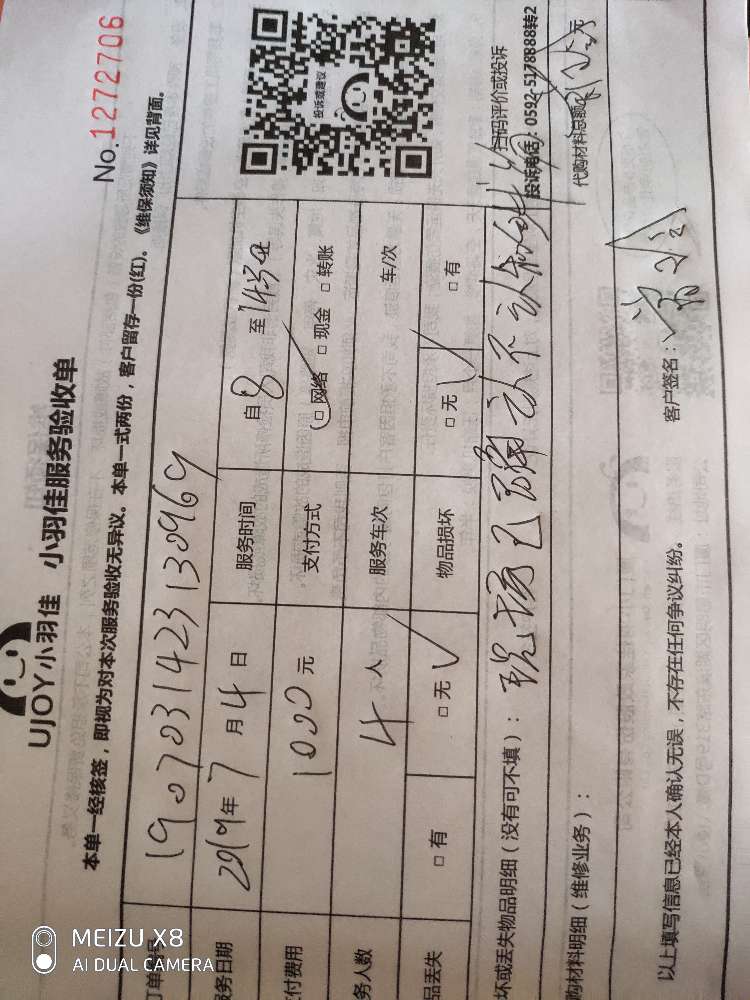 UJOY小羽佳 小羽佳服务验收单
No.1272706
本单一经核签，即视为对本次服务验收无异议。本单一式两份，客户留存一份(红)。《维保须知》详见背面。
投诉或建议
扫码评价或投诉
投诉电话：0592-5178888转2
订单编号 1907031423130969
服务日期 2019年7月4日 服务时间 自8至
支付费用 1000元 支付方式 □网络 □现金 □转账
服务人数 4人 服务车次 车/次
物品丢失 □有 □无 物品损坏 □无 □有
坏或丢失物品明细（没有可不填）： 现场已确认
购材料明细（维修业务）： 代购材料总额： 元
以上填写信息已经本人确认无误，不存在任何争议纠纷。 客户签名：
MEIZU X8
AI DUAL CAMERA